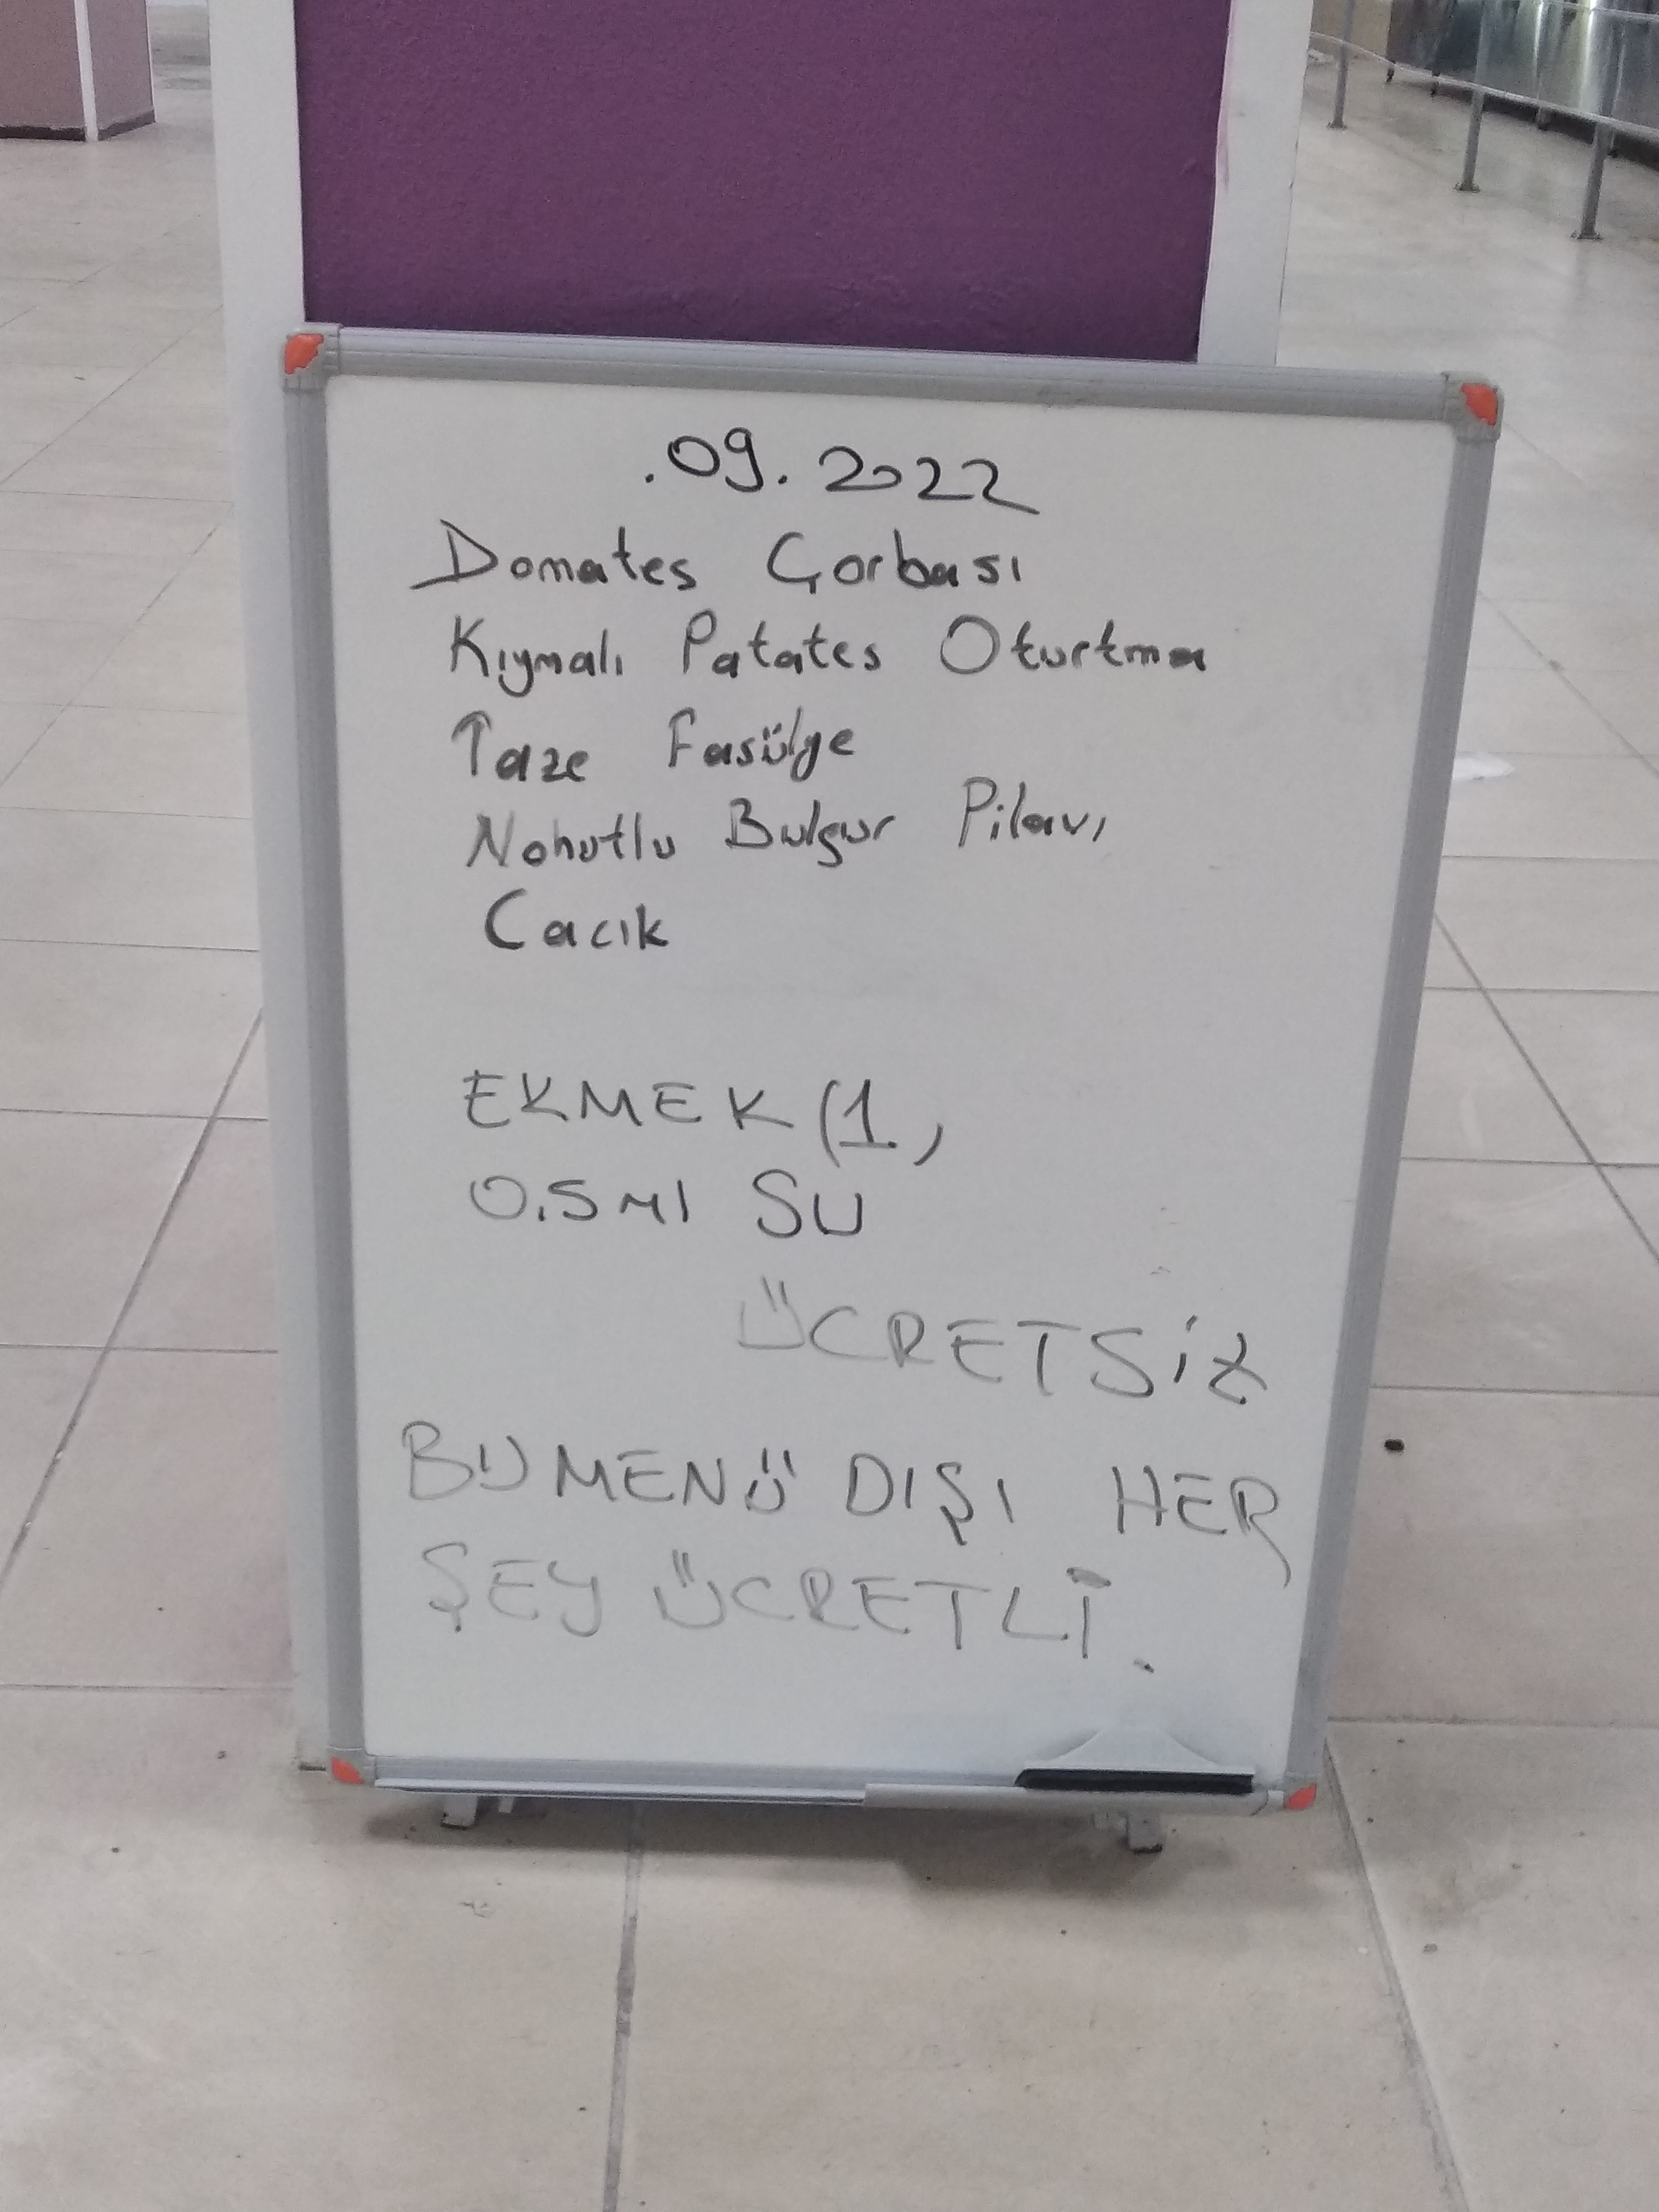 .09.2022
Domates Çorbası
Kıymalı Patates Oturtma
Taze Fasülye
Nohutlu Bulgur Pilavı
Cacık
EKMEK (1)
0.5 Ml SU
ÜCRETSİZ
BU MENÜ DIŞI HER
ŞEY ÜCRETLİ.